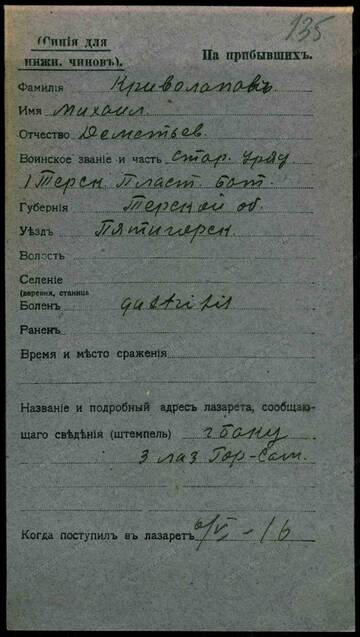 135
(Синія для
нижн. чиновъ).
На прибывшихъ.
Фамилія Криволаповъ
Имя Михаил.
Отчество Деметьев.
Воинское званіе и часть Стар. уряд
1 Терск. Пласт. бат.
Губернія Терской об.
Уѣздъ Пятигорск.
Волость
Селеніе
(деревня, станица
Боленъ gastritis
Раненъ
Время и мѣсто сраженія
Названіе и подробный адресъ лазарета, сообщаю-
щаго свѣдѣнія (штемпель) г Баку
3 лаз Гор-Сам.
Когда поступилъ въ лазаретъ 6/VI - 16